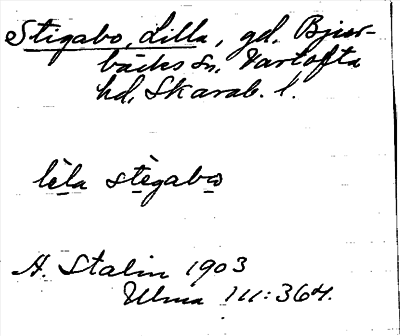 Stigabo, Lilla, gd. Bjur-
bäcks sn. Vartofta
hd, Skarab. l.
lèla stègabω
H. Stalin 1903
Ulma III:364.